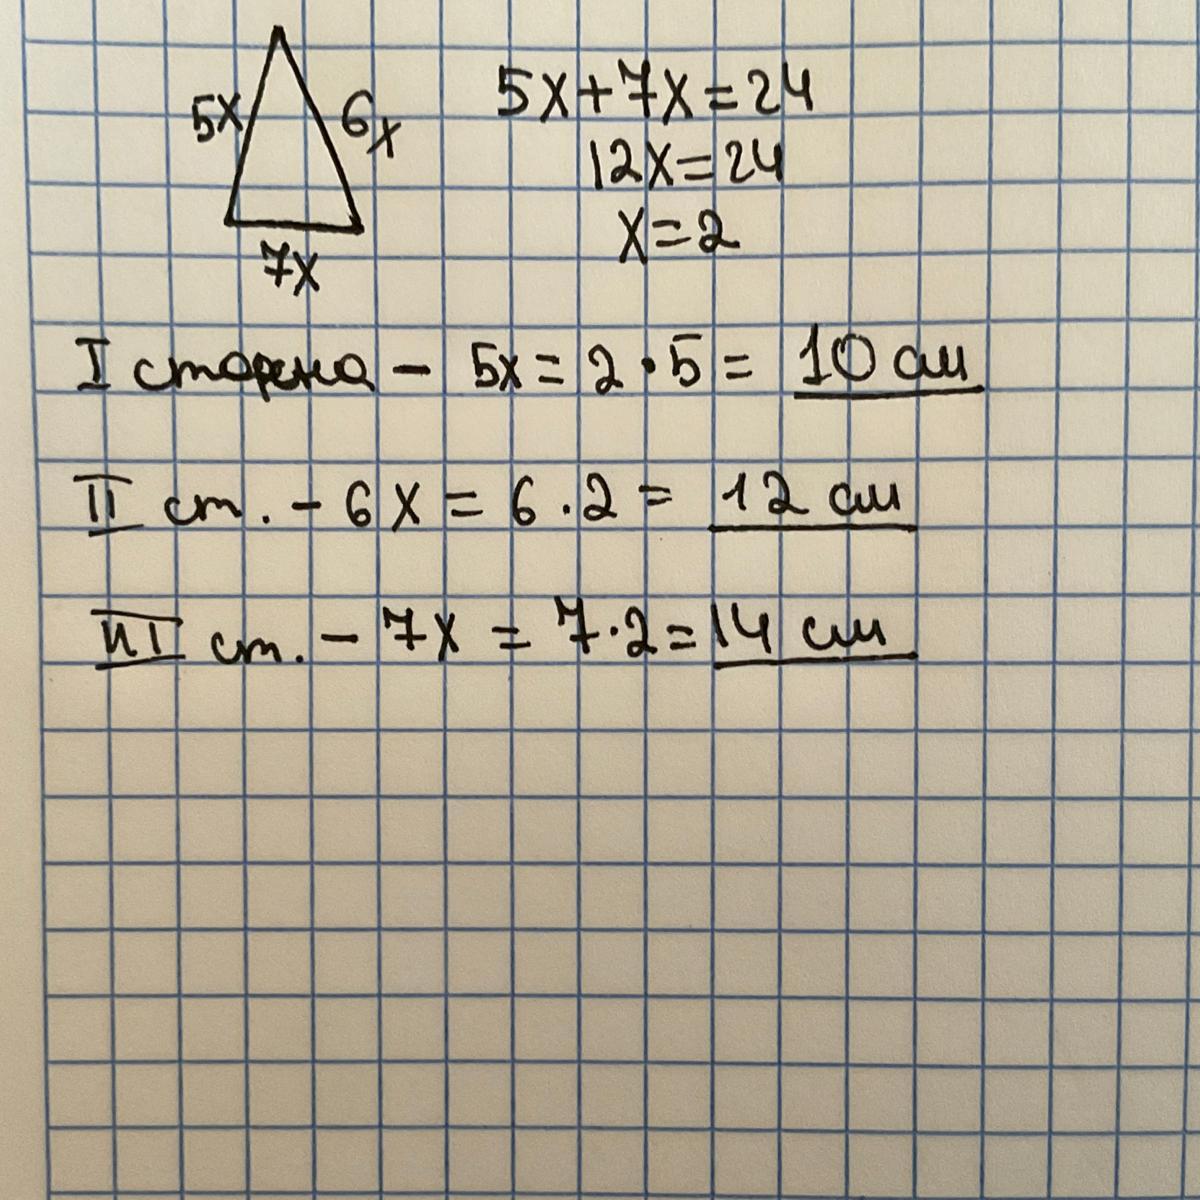 5x
6x
7x
5x+7x=24
12x=24
x=2
I сторона - 5x = 2 · 5 = 10 см
II ст. - 6x = 6 · 2 = 12 см
III ст. - 7x = 7 · 2 = 14 см